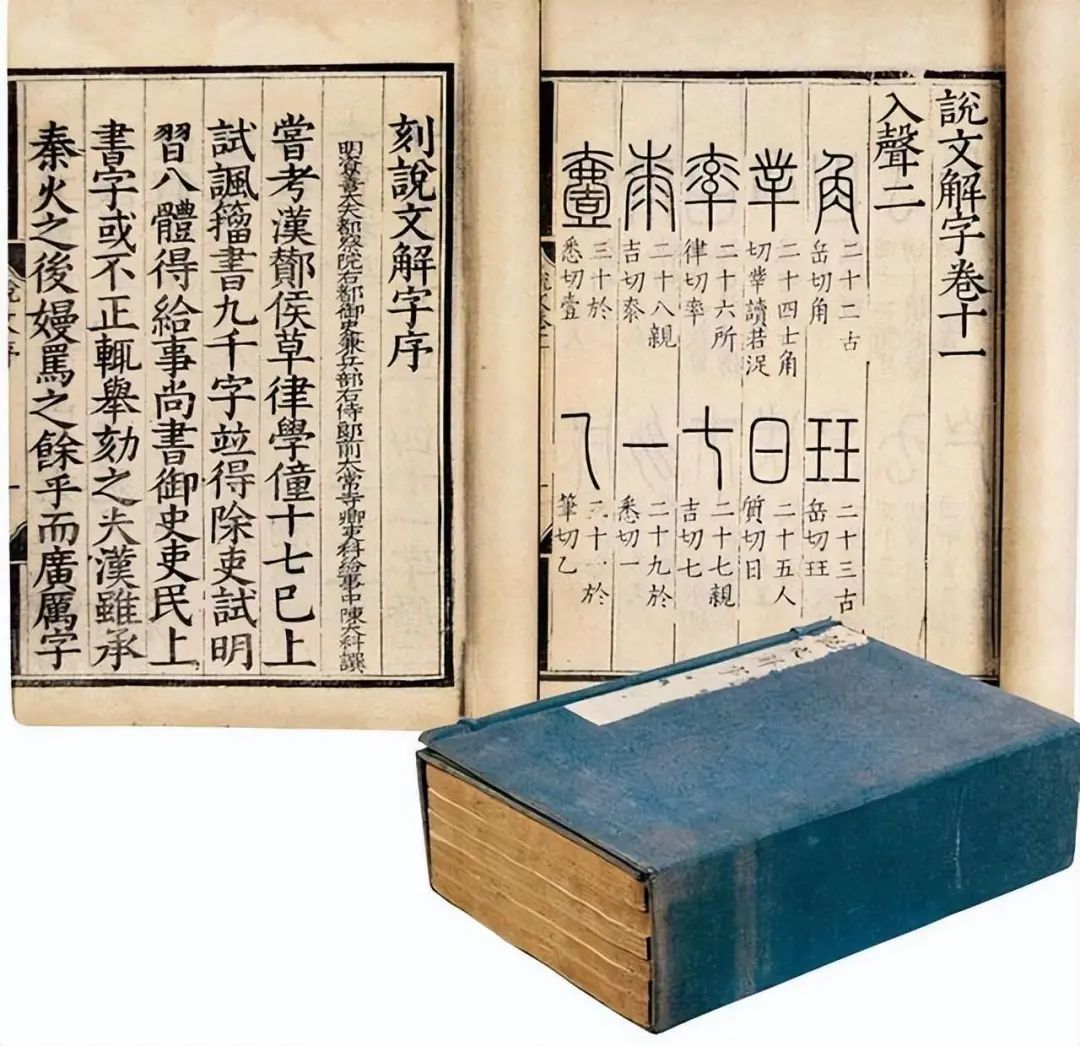 說文解字卷十一
入聲二
角 二十二古岳切角
玨 二十三古岳切玨
丵 二十四士角切丵讀若浞
日 二十五人質切日
率 二十六所律切率
七 二十七親吉切七
桼 二十八親吉切桼
一 二十九於悉切一
壹 三十於悉切壹
乙 三十一於筆切乙
刻說文解字序
明資善大夫都察院右都御史兼兵部右侍郎前太常寺卿吏科給事中陳大科譔
嘗考漢酇侯草律學僮十七已上
試諷籀書九千字竝得除吏試明
習八體得給事尚書御史吏民上
書字或不正輒舉劾之夫漢雖承
秦火之後嫚罵之餘乎而廣厲字